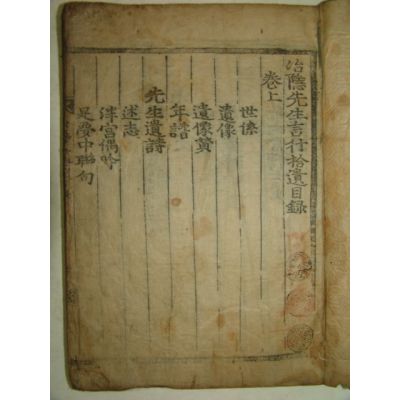 冶隱先生言行拾遺目錄
卷上
世系
遺像
遺像贊
年譜
先生遺詩
述志
泮宮偶吟
是夢中聯句